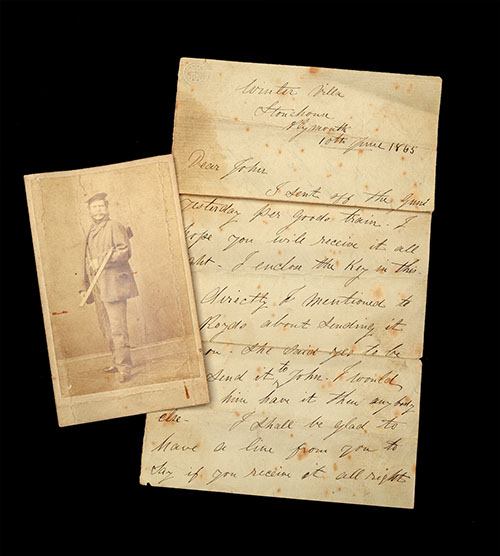 Winter Villa
Stonehouse
Plymouth
10th June 1865
Dear John
I sent off the Guns
yesterday per goods train. I
hope you will receive it all
right - I enclose the Key in this.
directly I mentioned to
Royds about sending it
on. She said yes to be
send it to John. I would
him have it then anybody
else - I shall be glad to
have a line from you to
say if you receive it all right